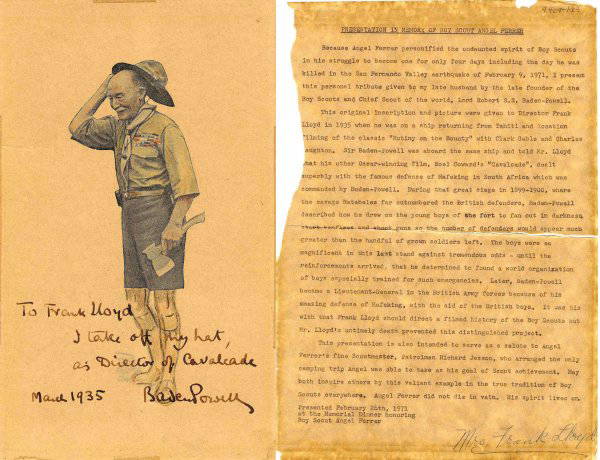 To Frank Lloyd
I take off my hat,
as Director of Cavalcade
March 1935 Baden Powell
PRESENTATION IN MEMORY OF BOY SCOUT ANGEL FERRER
Because Angel Ferrer personified the undaunted spirit of Boy Scouts
in his struggle to become one for only four days including the day he was
killed in the San Fernando Valley earthquake of February 9, 1971, I present
this personal tribute given to my late husband by the late founder of the
Boy Scouts and Chief Scout of the world, Lord Robert S.S. Baden-Powell.
This original inscription and picture were given to Director Frank
Lloyd in 1935 when he was on a ship returning from Tahiti and location
filming of the classic "Mutiny on the Bounty" with Clark Gable and Charles
Laughton. Sir Baden-Powell was aboard the same ship and told Mr. Lloyd
that his other Oscar-winning film, Noel Coward's "Cavalcade", dealt
superbly with the famous defense of Mafeking in South Africa which was
commanded by Baden-Powell. During that great siege in 1899-1900, where
the savage Matabeles far outnumbered the British defenders, Baden-Powell
described how he drew on the young boys of the fort to fan out in darkness,
start bonfires and shoot guns so the number of defenders would appear much
greater than the handful of grown soldiers left. The boys were so
magnificent in this last stand against tremendous odds - until the
reinforcements arrived, that he determined to found a world organization
of boys especially trained for such emergencies. Later, Baden-Powell
became a Lieutenant-General in the British Army forces because of his
amazing defense of Mafeking, with the aid of the British boys. It was his
wish that Frank Lloyd should direct a filmed history of the Boy Scouts but
Mr. Lloyd's untimely death prevented this distinguished project.
This presentation is also intended to serve as a salute to Angel
Ferrer's fine Scoutmaster, Patrolman Richard Jesson, who arranged the only
camping trip Angel was able to take as his goal of Scout achievement. May
both inspire others by this valiant example in the true tradition of Boy
Scouts everywhere. Angel Ferrer did not die in vain. His spirit lives on.
Presented February 26th, 1971
at the Memorial Dinner honoring
Boy Scout Angel Ferrer
Mrs. Frank Lloyd